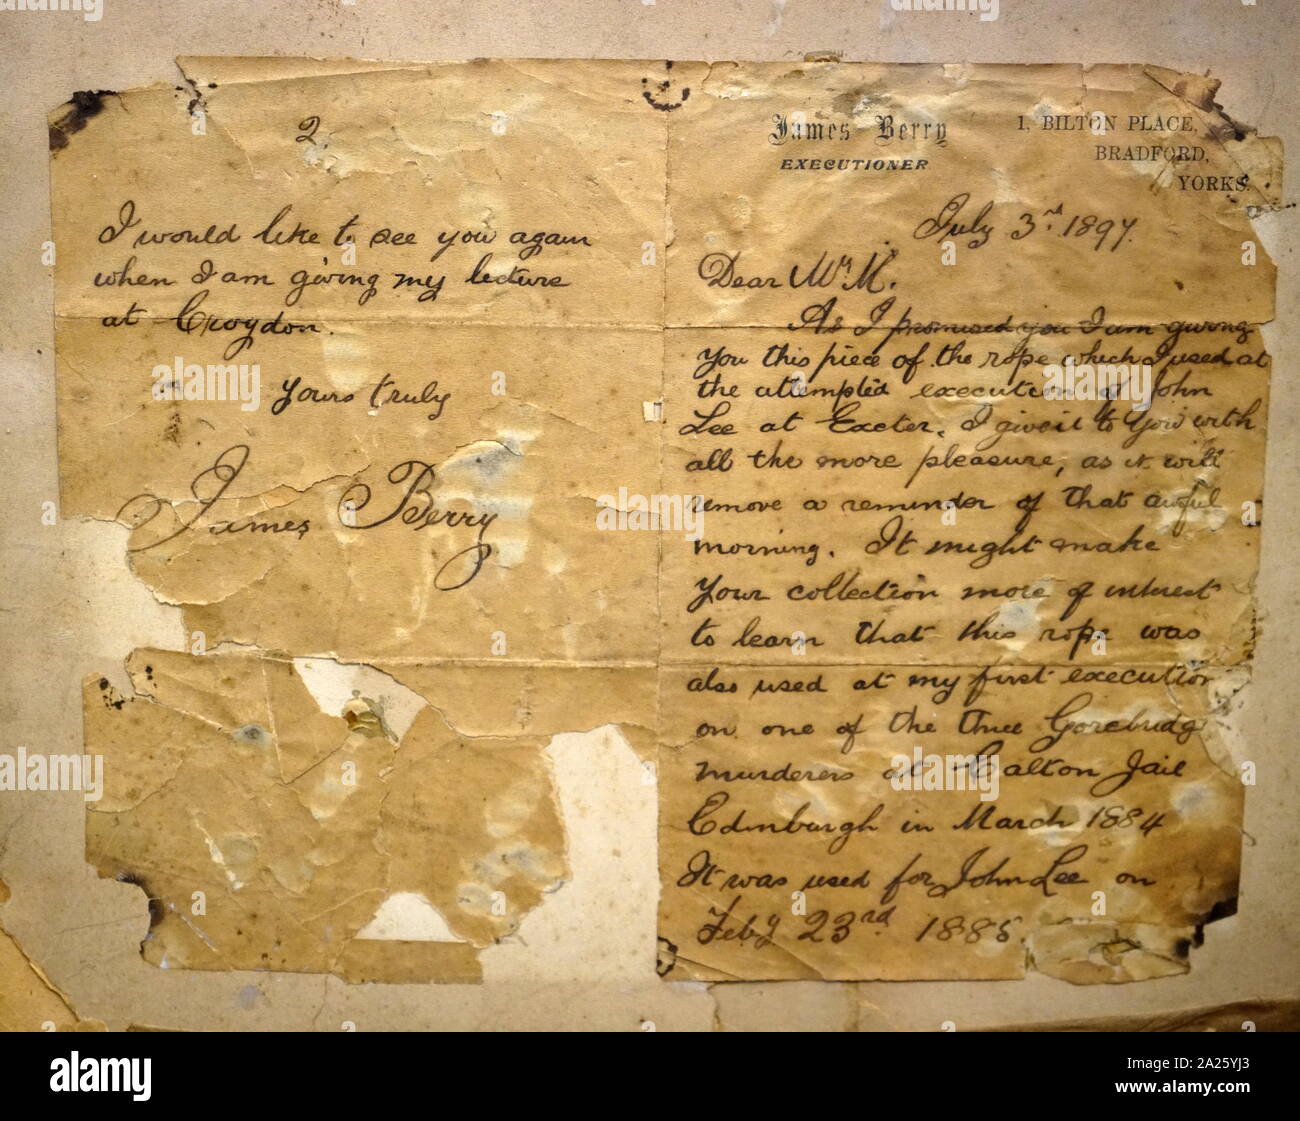 James Berry
EXECUTIONER
1, BILTON PLACE,
BRADFORD,
YORKS.
July 3rd 1897.
Dear Mr M.
As I promised you I am giving
you this piece of the rope which I used at
the attempted execution of John
Lee at Exeter. I give it to you with
all the more pleasure, as it will
remove a reminder of that awful
morning. It might make
your collection more of interest
to learn that this rope was
also used at my first execution
on one of the three Gorebridg
murderers at Calton Jail
Edinburgh in March 1884
It was used for John Lee on
Feby 23rd 1885.
2
I would like to see you again
when I am giving my lecture
at Croydon.
yours truly
James Berry
alamy
Image ID: 2A25YJ3
www.alamy.com